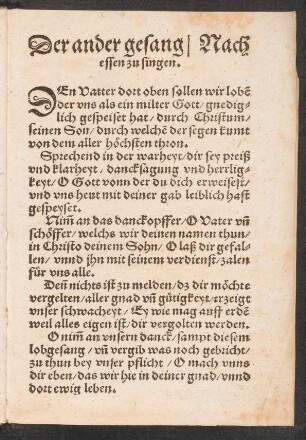 Der ander gesang / Nach
essen zu singen.
DEn Vatter dort oben sollen wir lobẽ
der vns als ein milter Gott / gnedig-
lich gespeiset hat / durch Christum /
seinen Son / durch welchẽ der segen kumt
von dem aller höchsten thron.
Sprechend in der warheyt / dir sey preiß
vnd klarheyt / dancksagung vnd herrlig-
keyt / O Gott vonn der du dich erweisest /
vnd vns heut mit deiner gab leiblich hast
gespeyset.
Nim̃ an das danckopffer / O Vater vñ
schöffer / welchs wir deinen namen thun /
in Christo deinem Sohn / O laß dir gefal-
len / vnnd jhn mit seinem verdienst / zalen
für vns alle.
Deñ nichts ist zu melden / dz dir möchte
vergelten / aller gnad vñ gütigkeyt / erzeigt
vnser schwacheyt / Ey wie mag auff erdẽ
weil alles eigen ist / dir vergolten werden.
O nim̃ an vnsern danck / sampt diesem
lobgesang / vñ vergib was noch gebricht /
zu thun bey vnser pflicht / O mach vnns
dir eben / das wir hie in deiner gnad / vnnd
dort ewig leben.